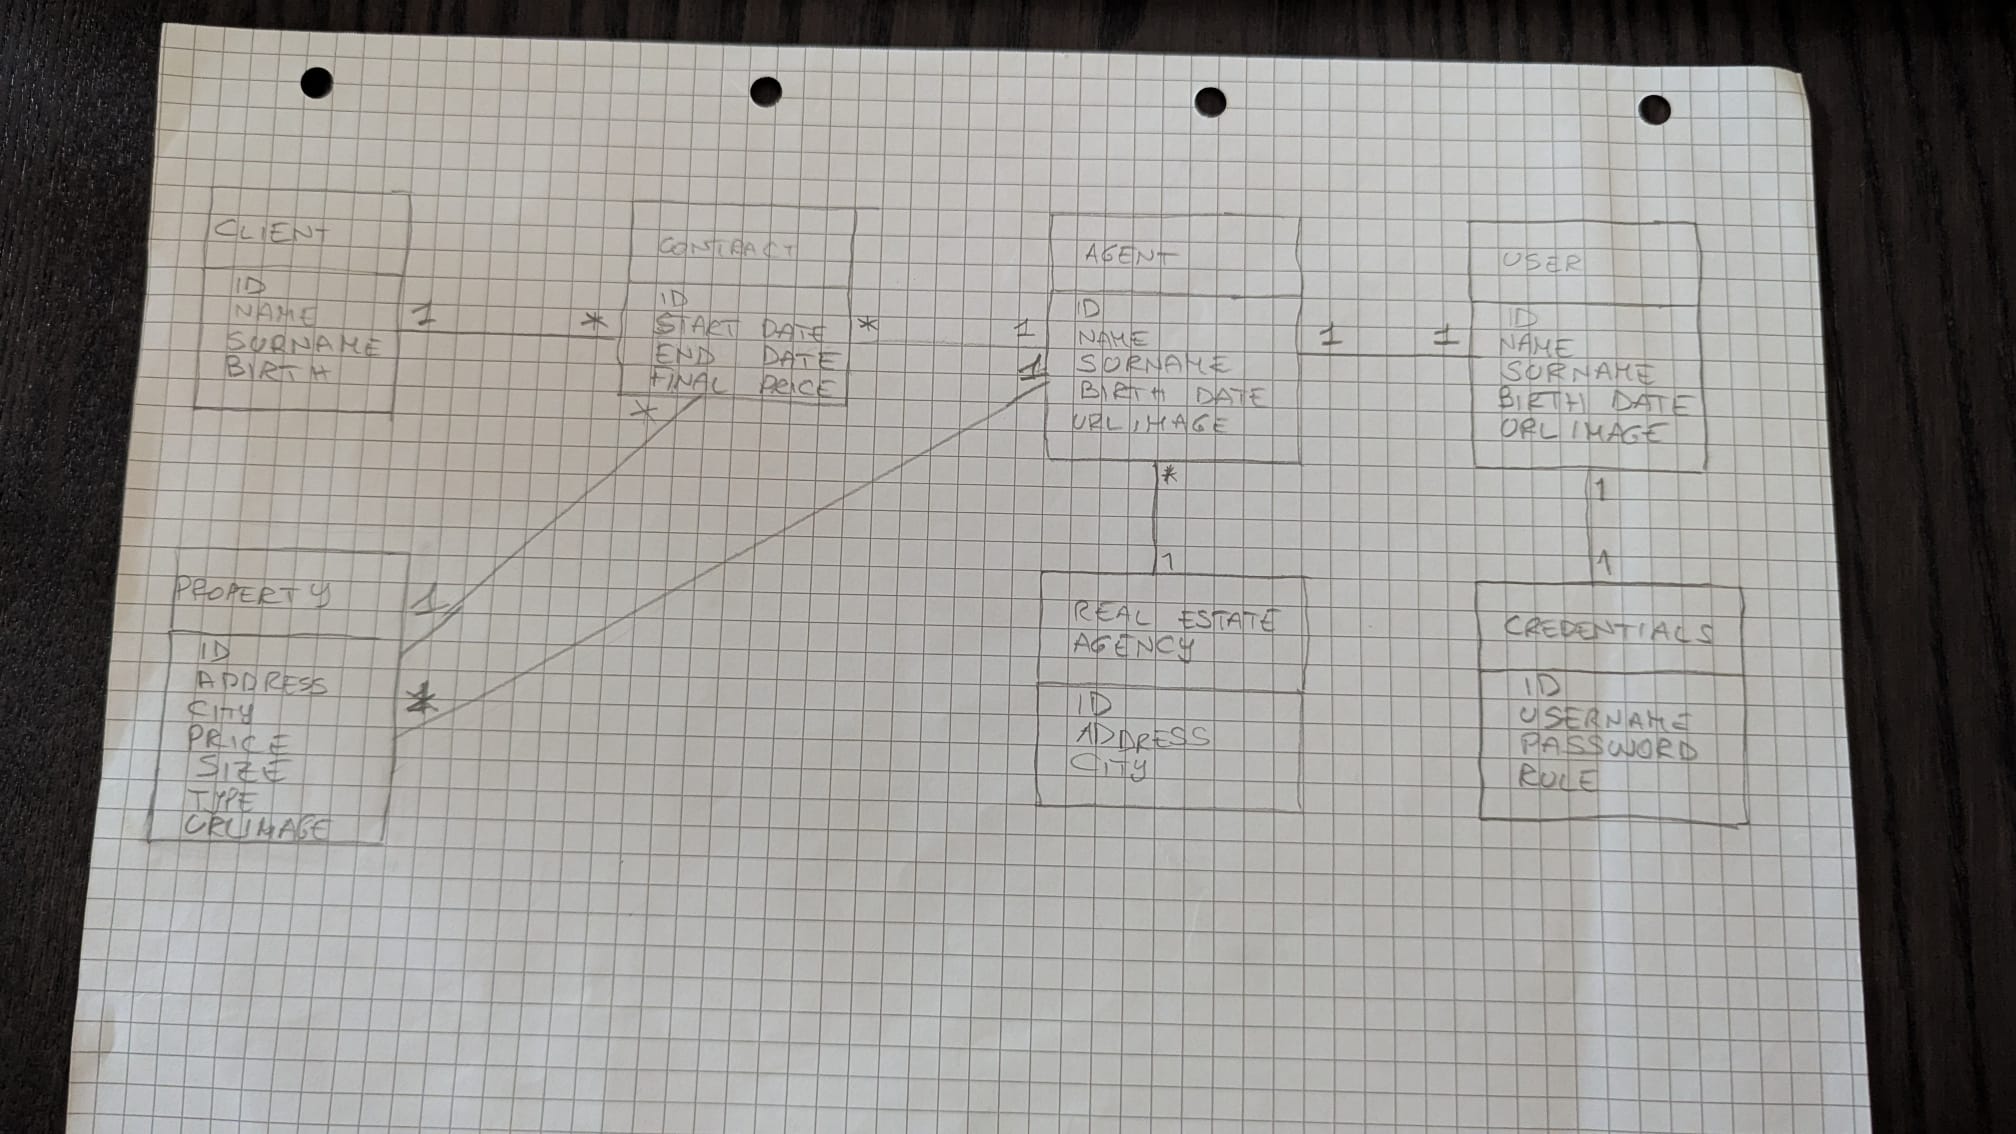 CLIENT
ID
NAME
SURNAME
BIRTH
1
*
CONTRACT
ID
START DATE
END DATE
FINAL PRICE
*
*
1
1
AGENT
ID
NAME
SURNAME
BIRTH DATE
URLIMAGE
1
1
USER
ID
NAME
SURNAME
BIRTH DATE
URLIMAGE
*
1
1
1
PROPERTY
ID
ADDRESS
CITY
PRICE
SIZE
TYPE
URLIMAGE
1
*
REAL ESTATE
AGENCY
ID
ADDRESS
CITY
CREDENTIALS
ID
USERNAME
PASSWORD
ROLE